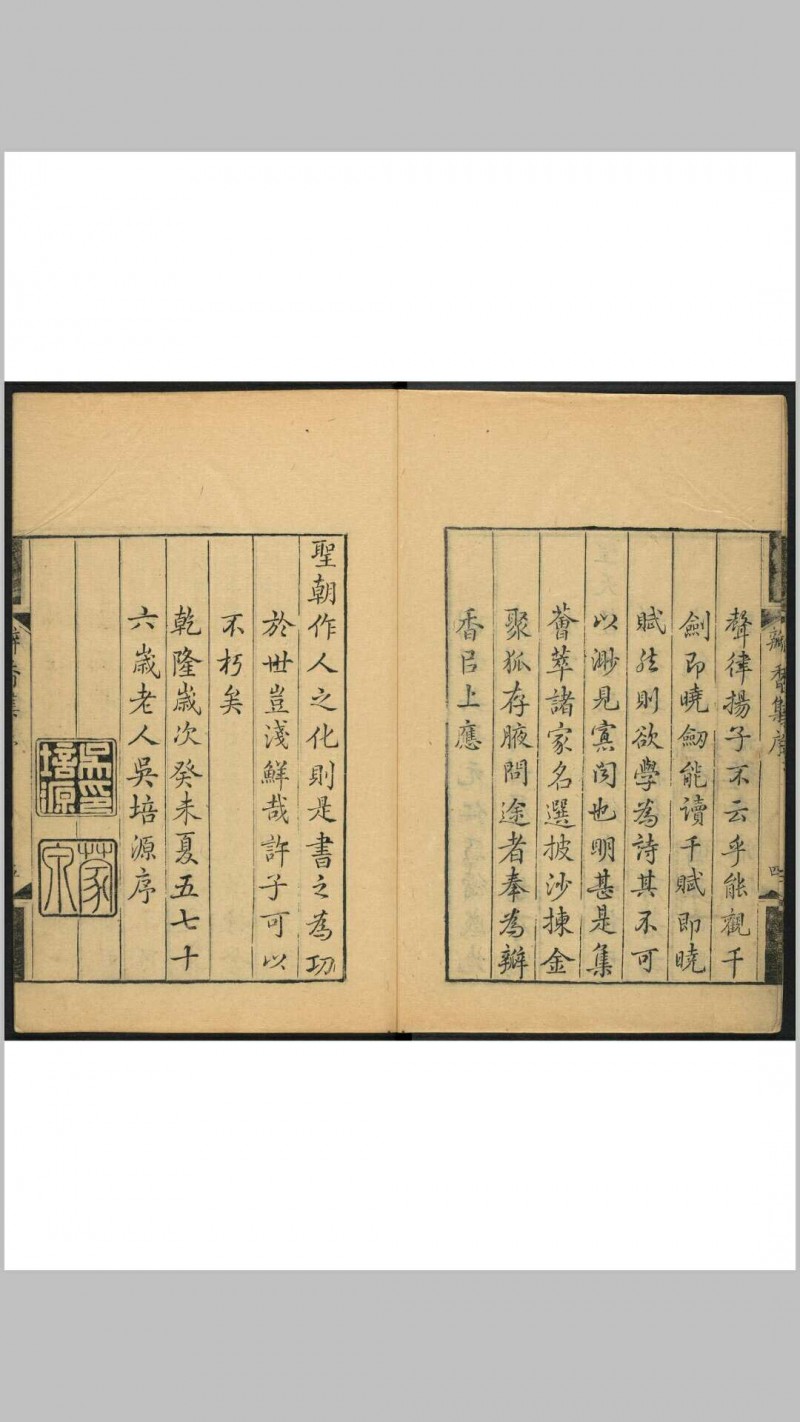 瓣香集序
四
聲律揚子不云乎能觀千
劍即曉劒能讀千賦即曉
賦然則欲學為詩其不可
以渺見寡聞也明甚是集
薈萃諸家名選披沙揀金
聚狐存腋問途者奉為瓣
香㠯上應
聖朝作人之化則是書之為功
於世豈淺鮮哉許子可以
不朽矣
乾隆歲次癸未夏五七十
六歲老人吳培源序
吳培源印
蒙泉